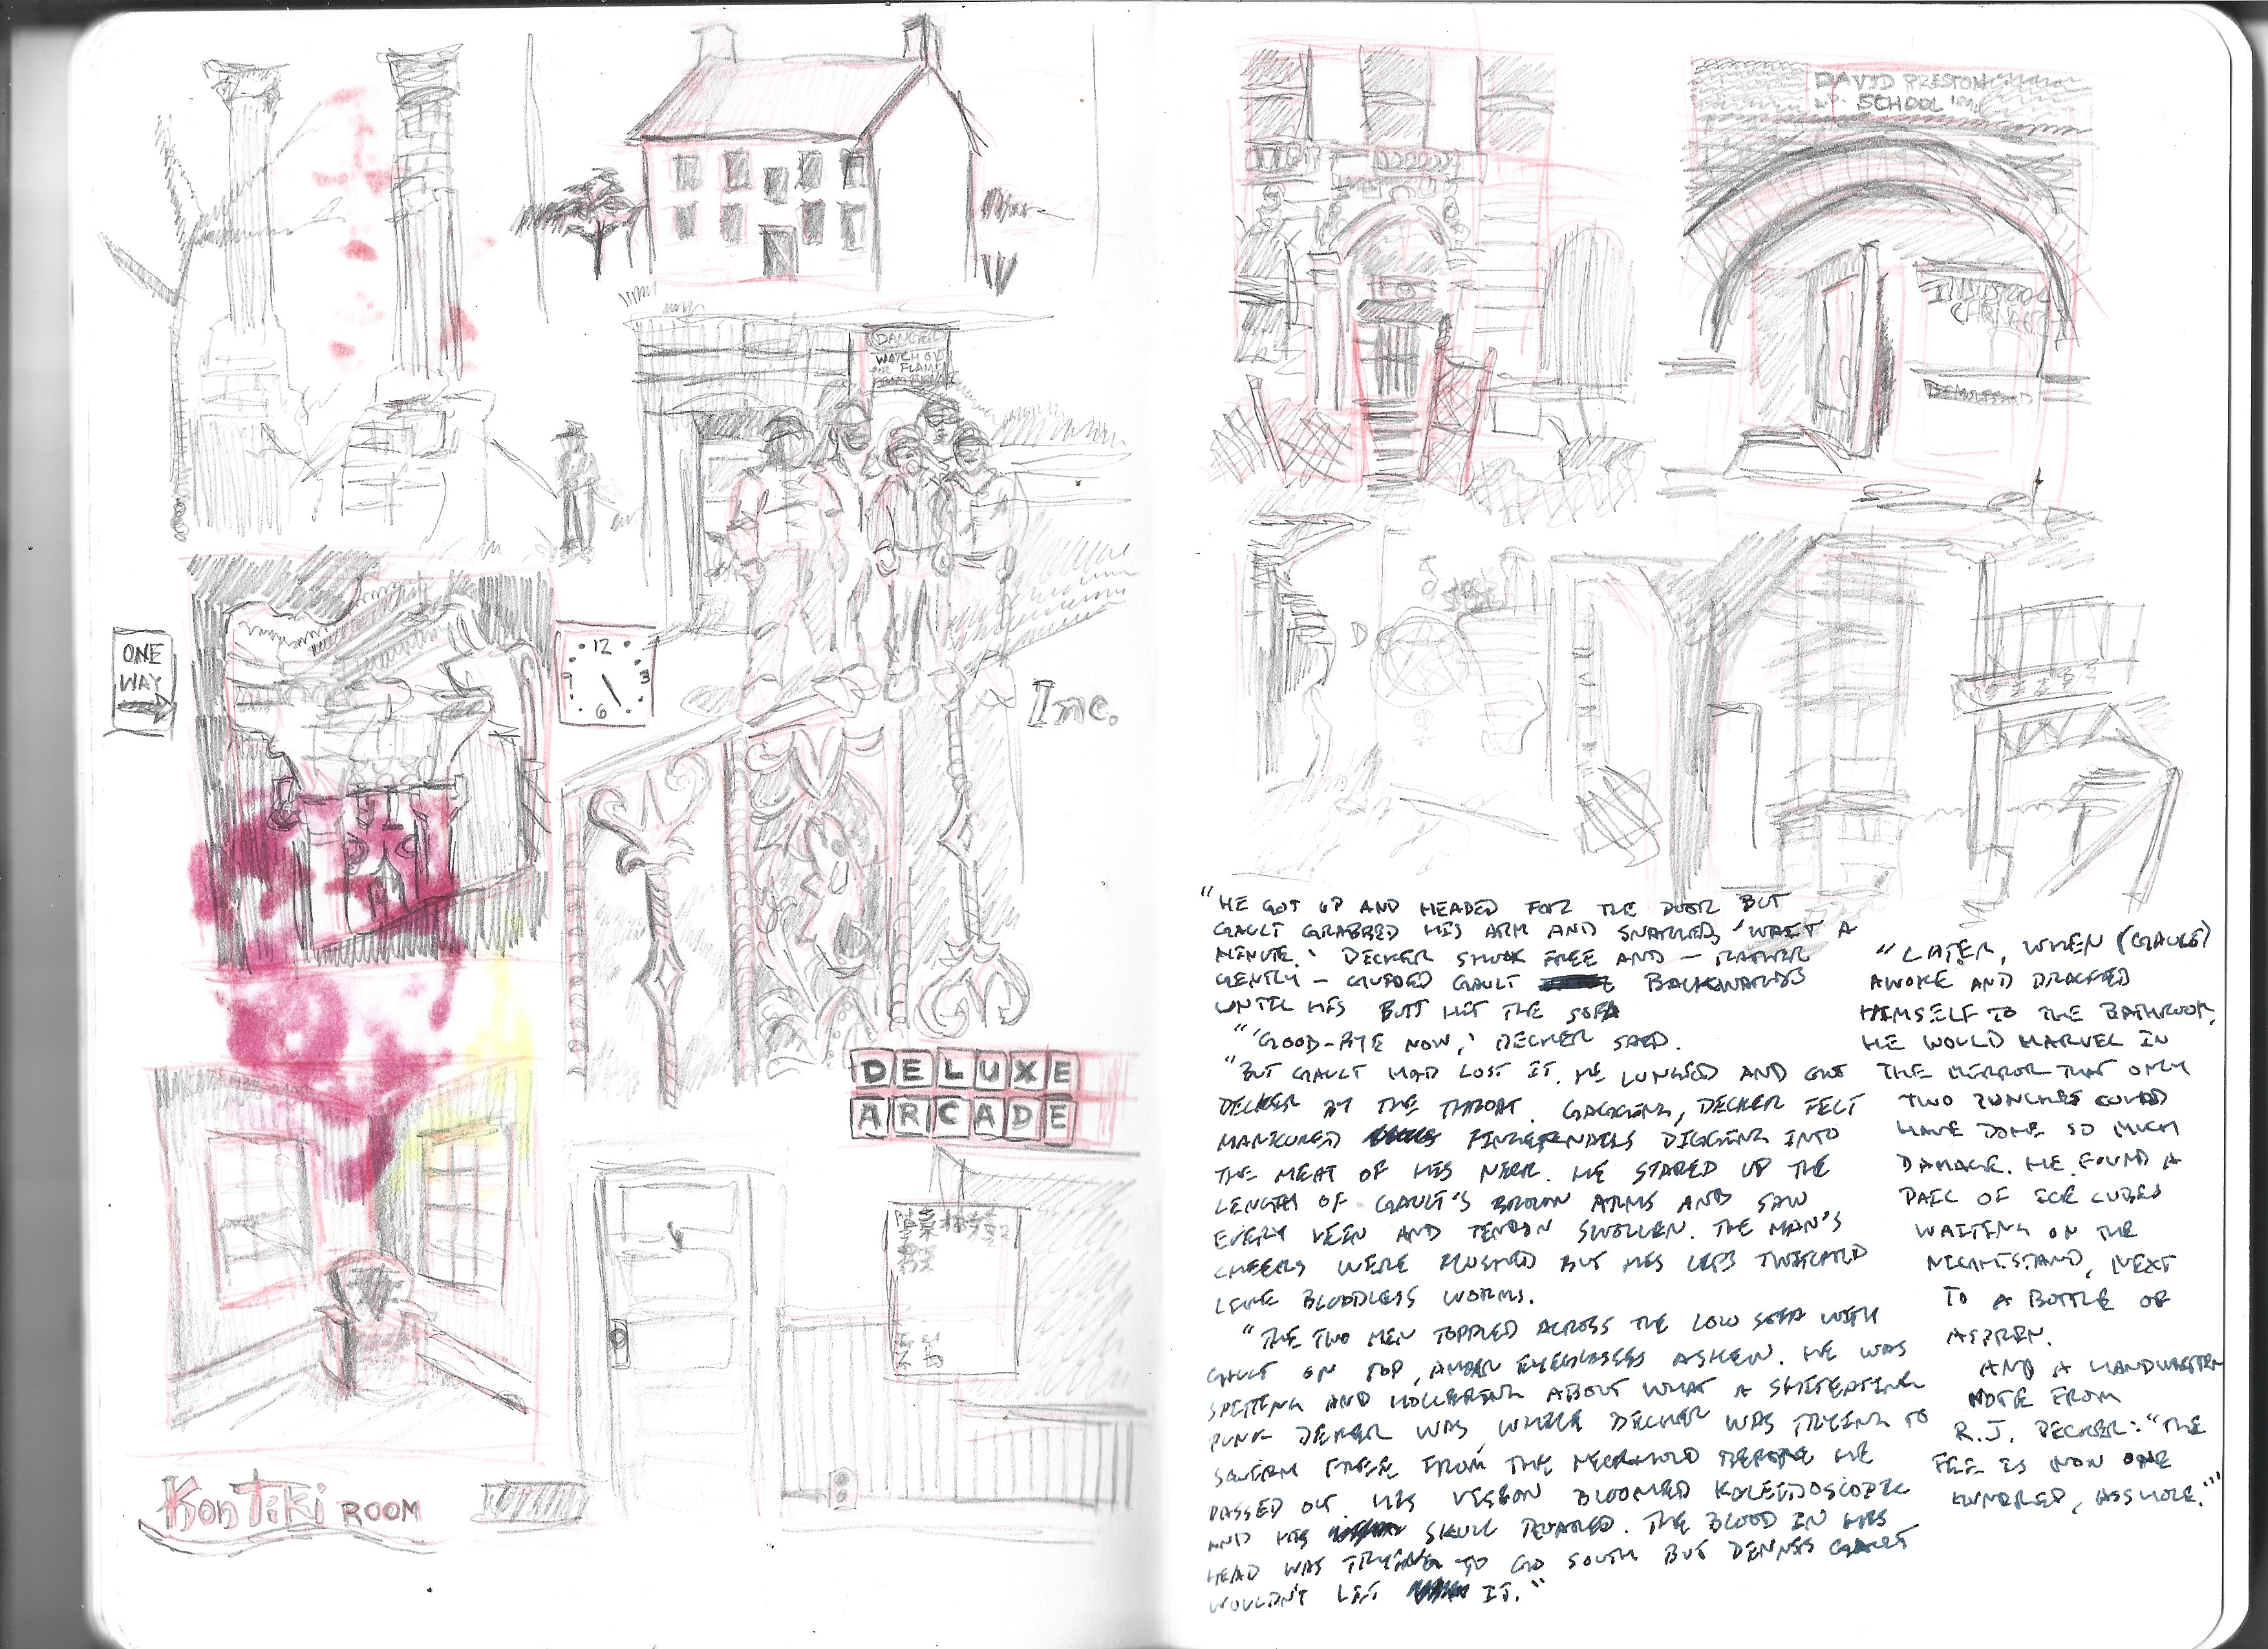 DANGER
WATCH
FLAM
ONE
WAY
12
3
6
9
Inc.
DELUXE
ARCADE
Kon Tiki ROOM
DAVID PRESTON
SCHOOL
"HE GOT UP AND HEADED FOR THE DOOR BUT
GAULT GRABBED HIS ARM AND SNARLED, 'WAIT A
MINUTE.' DECKER SHOOK FREE AND — RATHER
GENTLY — GUIDED GAULT BACKWARDS
UNTIL HIS BUTT HIT THE SOFA
"'GOOD-BYE NOW,' DECKER SAID.
"BUT GAULT HAD LOST IT. HE LUNGED AND GOT
DECKER AT THE THROAT. GAGGING, DECKER FELT
MANICURED FINGERNAILS DIGGING INTO
THE MEAT OF HIS NECK. HE STARED UP THE
LENGTH OF GAULT'S BROWN ARMS AND SAW
EVERY VEIN AND TENDON SWOLLEN. THE MAN'S
CHEEKS WERE FLUSHED BUT HIS LIPS TWITCHED
LIKE BLOODLESS WORMS.
"THE TWO MEN TOPPLED ACROSS THE LOW SOFA WITH
GAULT ON TOP, AMBER EYEGLASSES ASKEW. HE WAS
SPITTING AND HOLLERING ABOUT WHAT A SHITEATING
PUNK DECKER WAS, WHILE DECKER WAS TRYING TO
SQUIRM FREE FROM THE NECKHOLD BEFORE HE
PASSED OUT. HIS VISION BLOOMED KALEIDOSCOPIC
AND HIS SKULL ROARED. THE BLOOD IN HIS
HEAD WAS TRYING TO GO SOUTH BUT DENNIS GAULT
WOULDN'T LET IT."
"LATER, WHEN (GAULT)
AWOKE AND DRAGGED
HIMSELF TO THE BATHROOM,
HE WOULD MARVEL IN
THE MIRROR THAT ONLY
TWO PUNCHES COULD
HAVE DONE SO MUCH
DAMAGE. HE FOUND A
PAIL OF ICE CUBES
WAITING ON THE
NIGHTSTAND, NEXT
TO A BOTTLE OF
ASPIRIN.
AND A HANDWRITTEN
NOTE FROM
R.J. DECKER: "THE
FEE IS NOW ONE
HUNDRED, ASSHOLE."'"